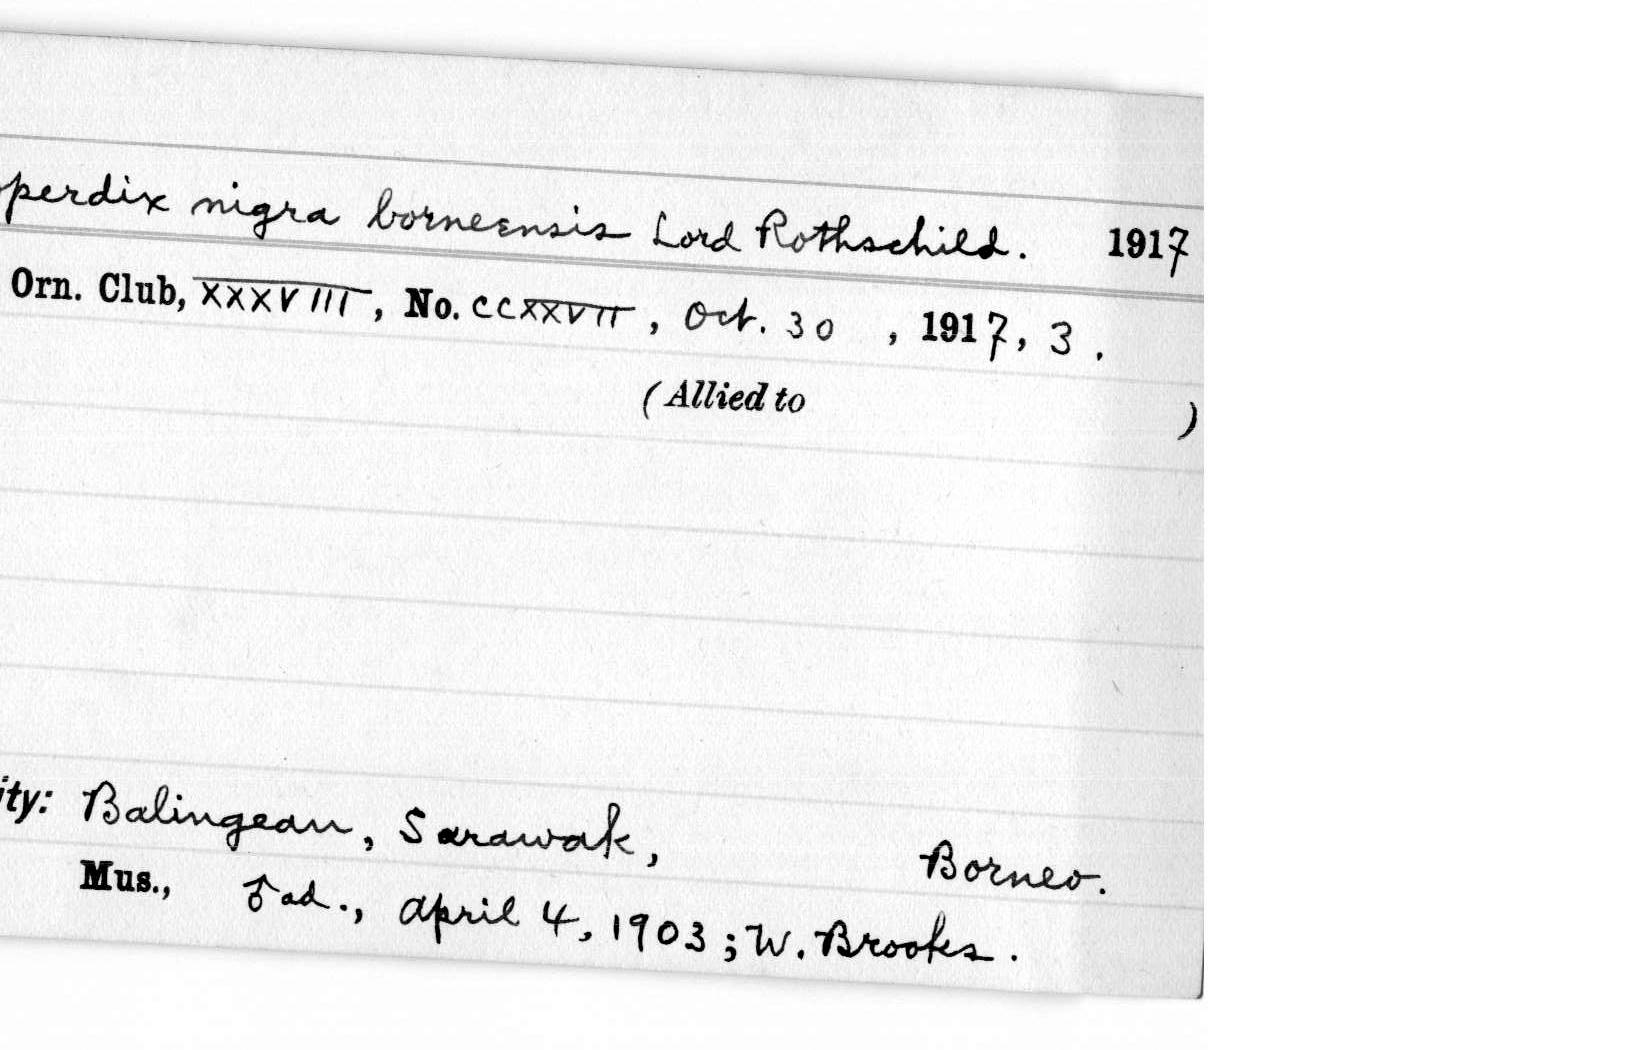 perdix nigra borneensis Lord Rothschild. 1917
Orn. Club, XXXVIII, No. CCXXVII, Oct. 30, 1917, 3.
(Allied to )
ity: Balingean, Sarawak, Borneo.
Mus., ♂ ad., April 4, 1903; W. Brooks.